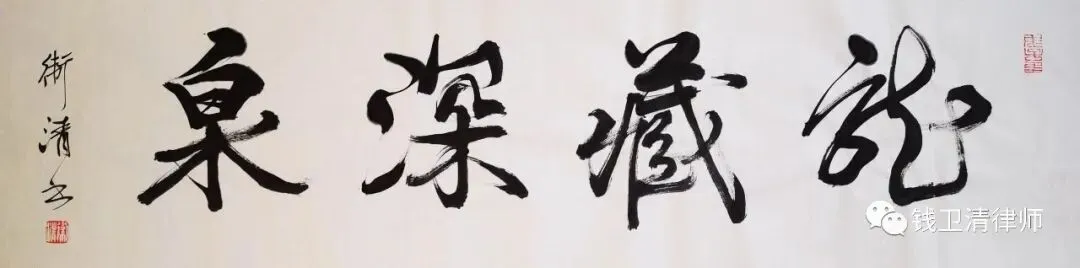 龍藏深泉
衛清书
钱卫清律师